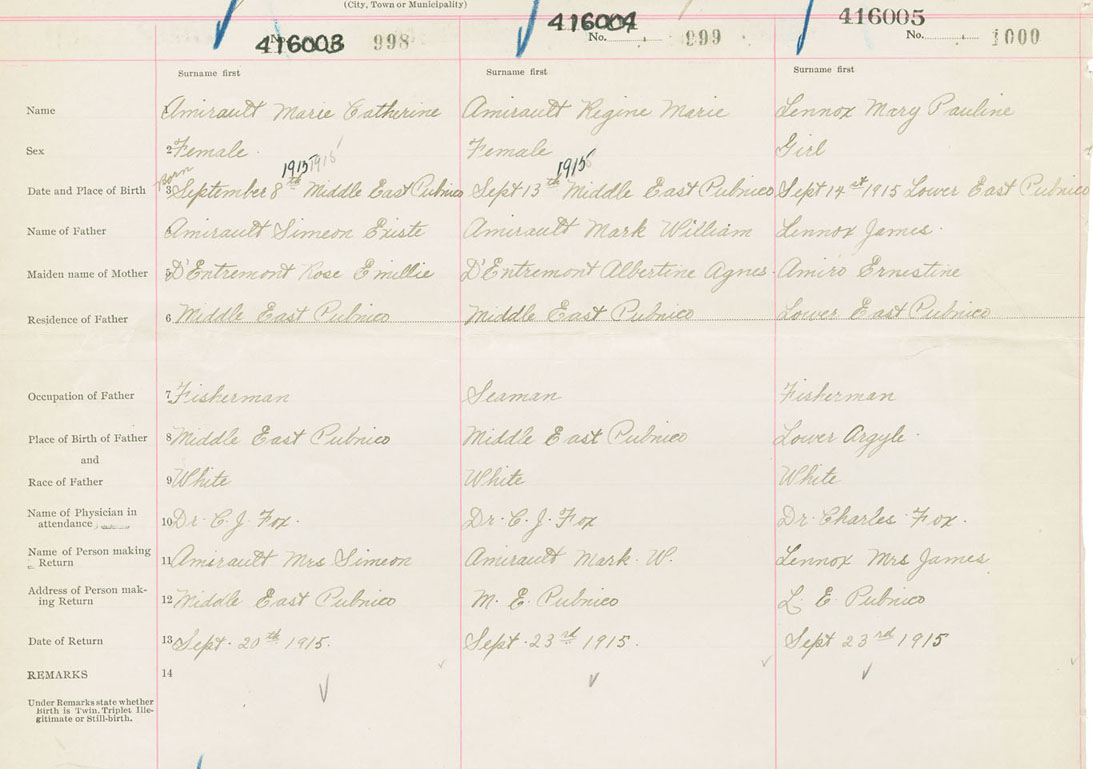 (City, Town or Municipality)
416003 998 416004 No. 999 416005 No. 1000
Surname first Surname first Surname first
Name 1 Amirault Marie Catherine Amirault Regine Marie Lennox Mary Pauline
Sex 2 Female. Female Girl
Born 1915 1915 1915
Date and Place of Birth 3 September 8th Middle East Pubnico Sept 13th Middle East Pubnico Sept 14st 1915 Lower East Pubnico
Name of Father Amirault Simeon Existe Amirault Mark William Lennox James.
Maiden name of Mother 5 D'Entremont Rose Emillie D'Entremont Albertine Agnes. Amiro Ernestine
Residence of Father 6 Middle East Pubnico Middle East Pubnico Lower East Pubnico
Occupation of Father 7 Fisherman Seaman Fisherman
Place of Birth of Father 8 Middle East Pubnico Middle East Pubnico Lower Argyle.
and
Race of Father 9 White White White
Name of Physician in
attendance 10 Dr. C. J. Fox. Dr. C. J. Fox Dr. Charles Fox.
Name of Person making
Return 11 Amirault Mrs Simeon Amirault Mark. W. Lennox Mrs James
Address of Person mak-
ing Return 12 Middle East Pubnico M. E. Pubnico L. E. Pubnico
Date of Return 13 Sept. 20th 1915. Sept. 23rd 1915. Sept 23rd 1915
REMARKS 14
Under Remarks state whether
Birth is Twin, Triplet Ille-
gitimate or Still-birth.